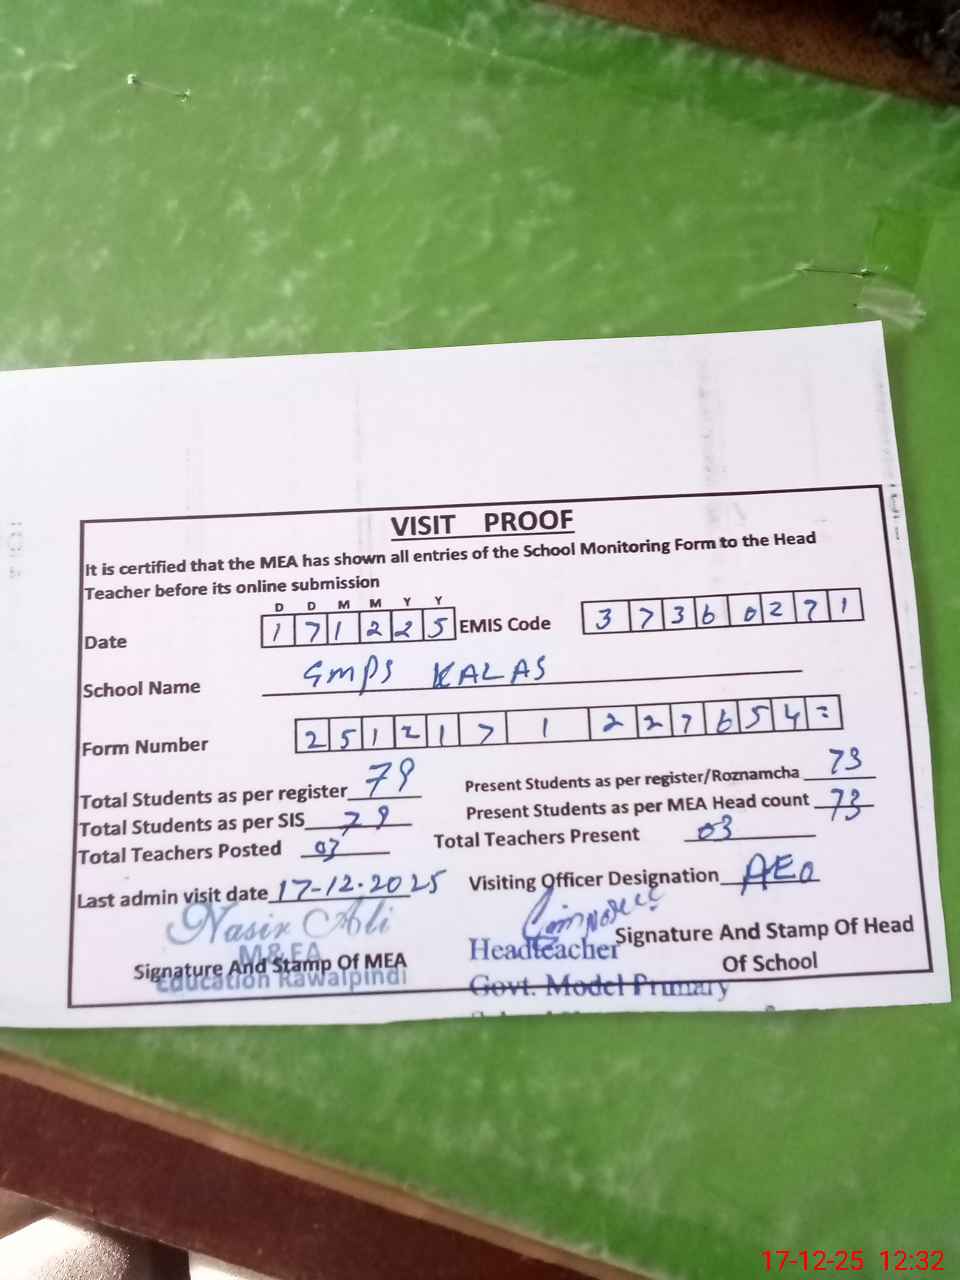 VISIT PROOF
It is certified that the MEA has shown all entries of the School Monitoring Form to the Head
Teacher before its online submission
D D M M Y Y
Date 1 7 1 2 2 5 EMIS Code 3 7 3 6 0 2 7 1
School Name GMPS KALAS
Form Number 2 5 1 2 1 7 1 2 2 7 6 5 4 =
Total Students as per register 79 Present Students as per register/Roznamcha 73
Total Students as per SIS 79 Present Students as per MEA Head count 73
Total Teachers Posted 03 Total Teachers Present 03
Last admin visit date 17-12-2025 Visiting Officer Designation AEO
Nasir Ali
M&EA
Signature And Stamp Of MEA
Education Rawalpindi
Headteacher
Govt. Model Primary
Signature And Stamp Of Head
Of School
17-12-25 12:32